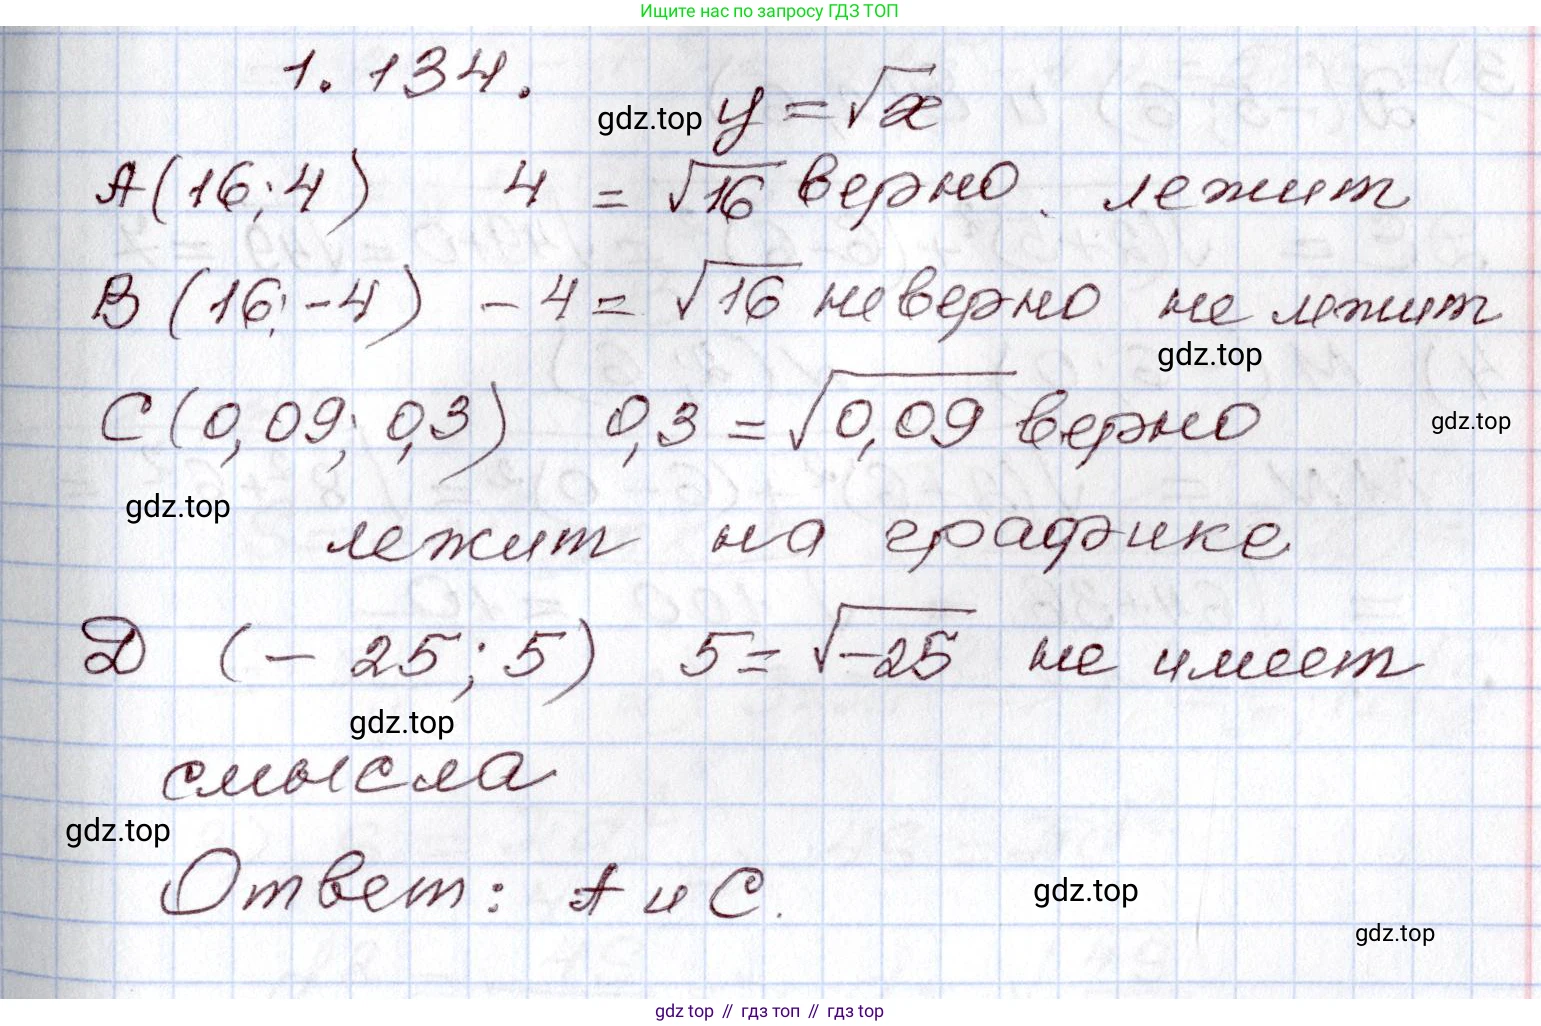 Ищите нас по запросу ГДЗ ТОП
1.134.
gdz.top y = √x
A(16; 4) 4 = √16 верно. лежит
B(16; -4) -4 = √16 неверно не лежит
gdz.top
C(0,09; 0,3) 0,3 = √0,09 верно
gdz.top
gdz.top
лежит на графике
D (-25; 5) 5 = √-25 не имеет
gdz.top
смысла
gdz.top
Ответ: A и C.
gdz.top
gdz.top
gdz top // гдз топ // гдз top